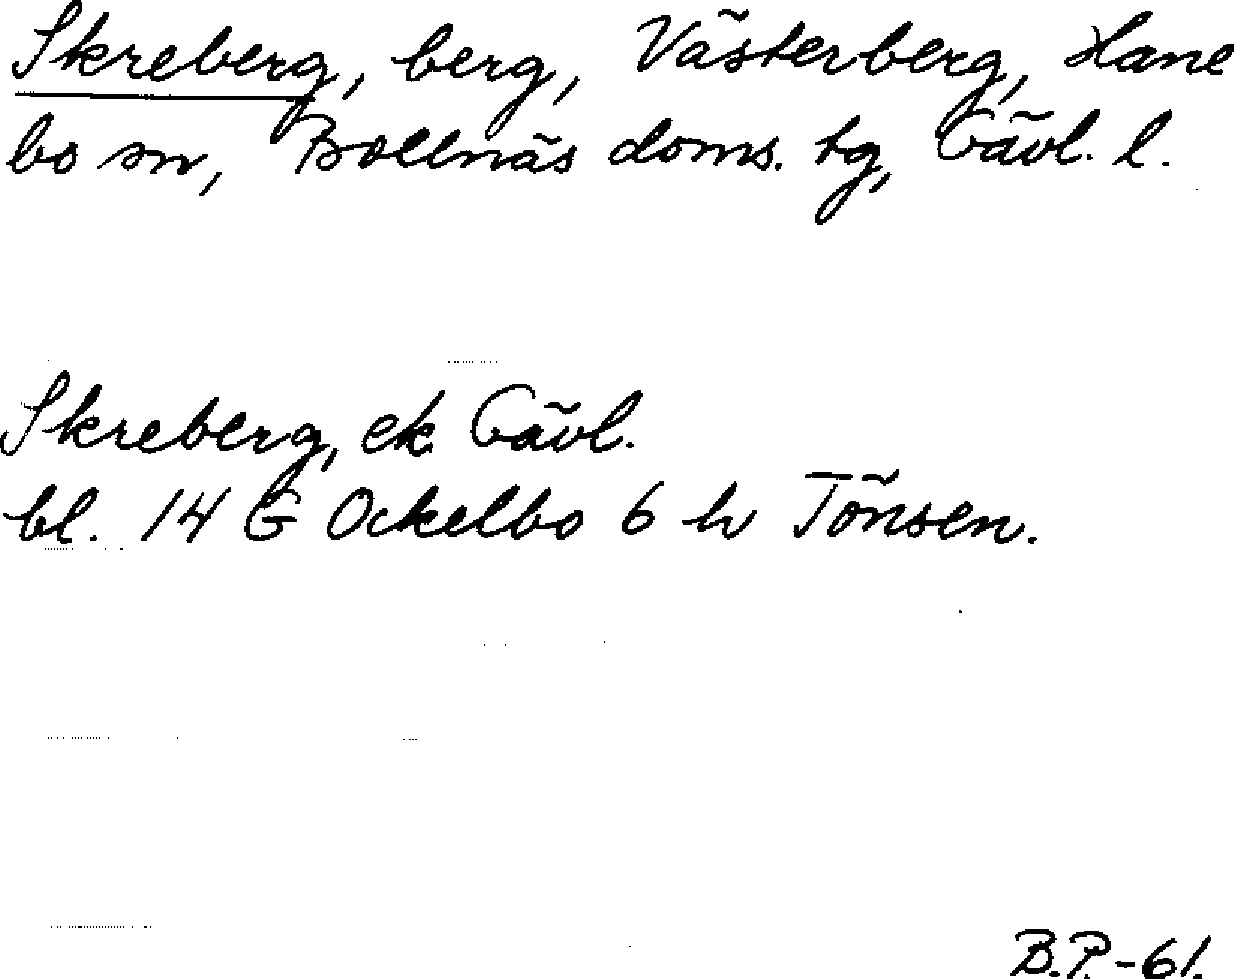 Skreberg, berg, Västerberg, Hane
bo sn, Bollnäs doms. tg, Gävl. l.
Skreberg, ek Gävl.
bl. 14 G Ockelbo 6 h Tönsen.
B.P.-61.